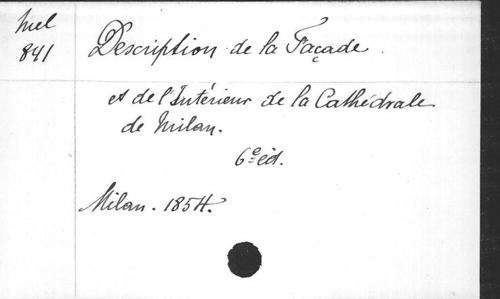 Mel
841
Description de la Façade
et de l'Intérieur de la Cathédrale
de Milan.
6e éd.
Milan. 1854.